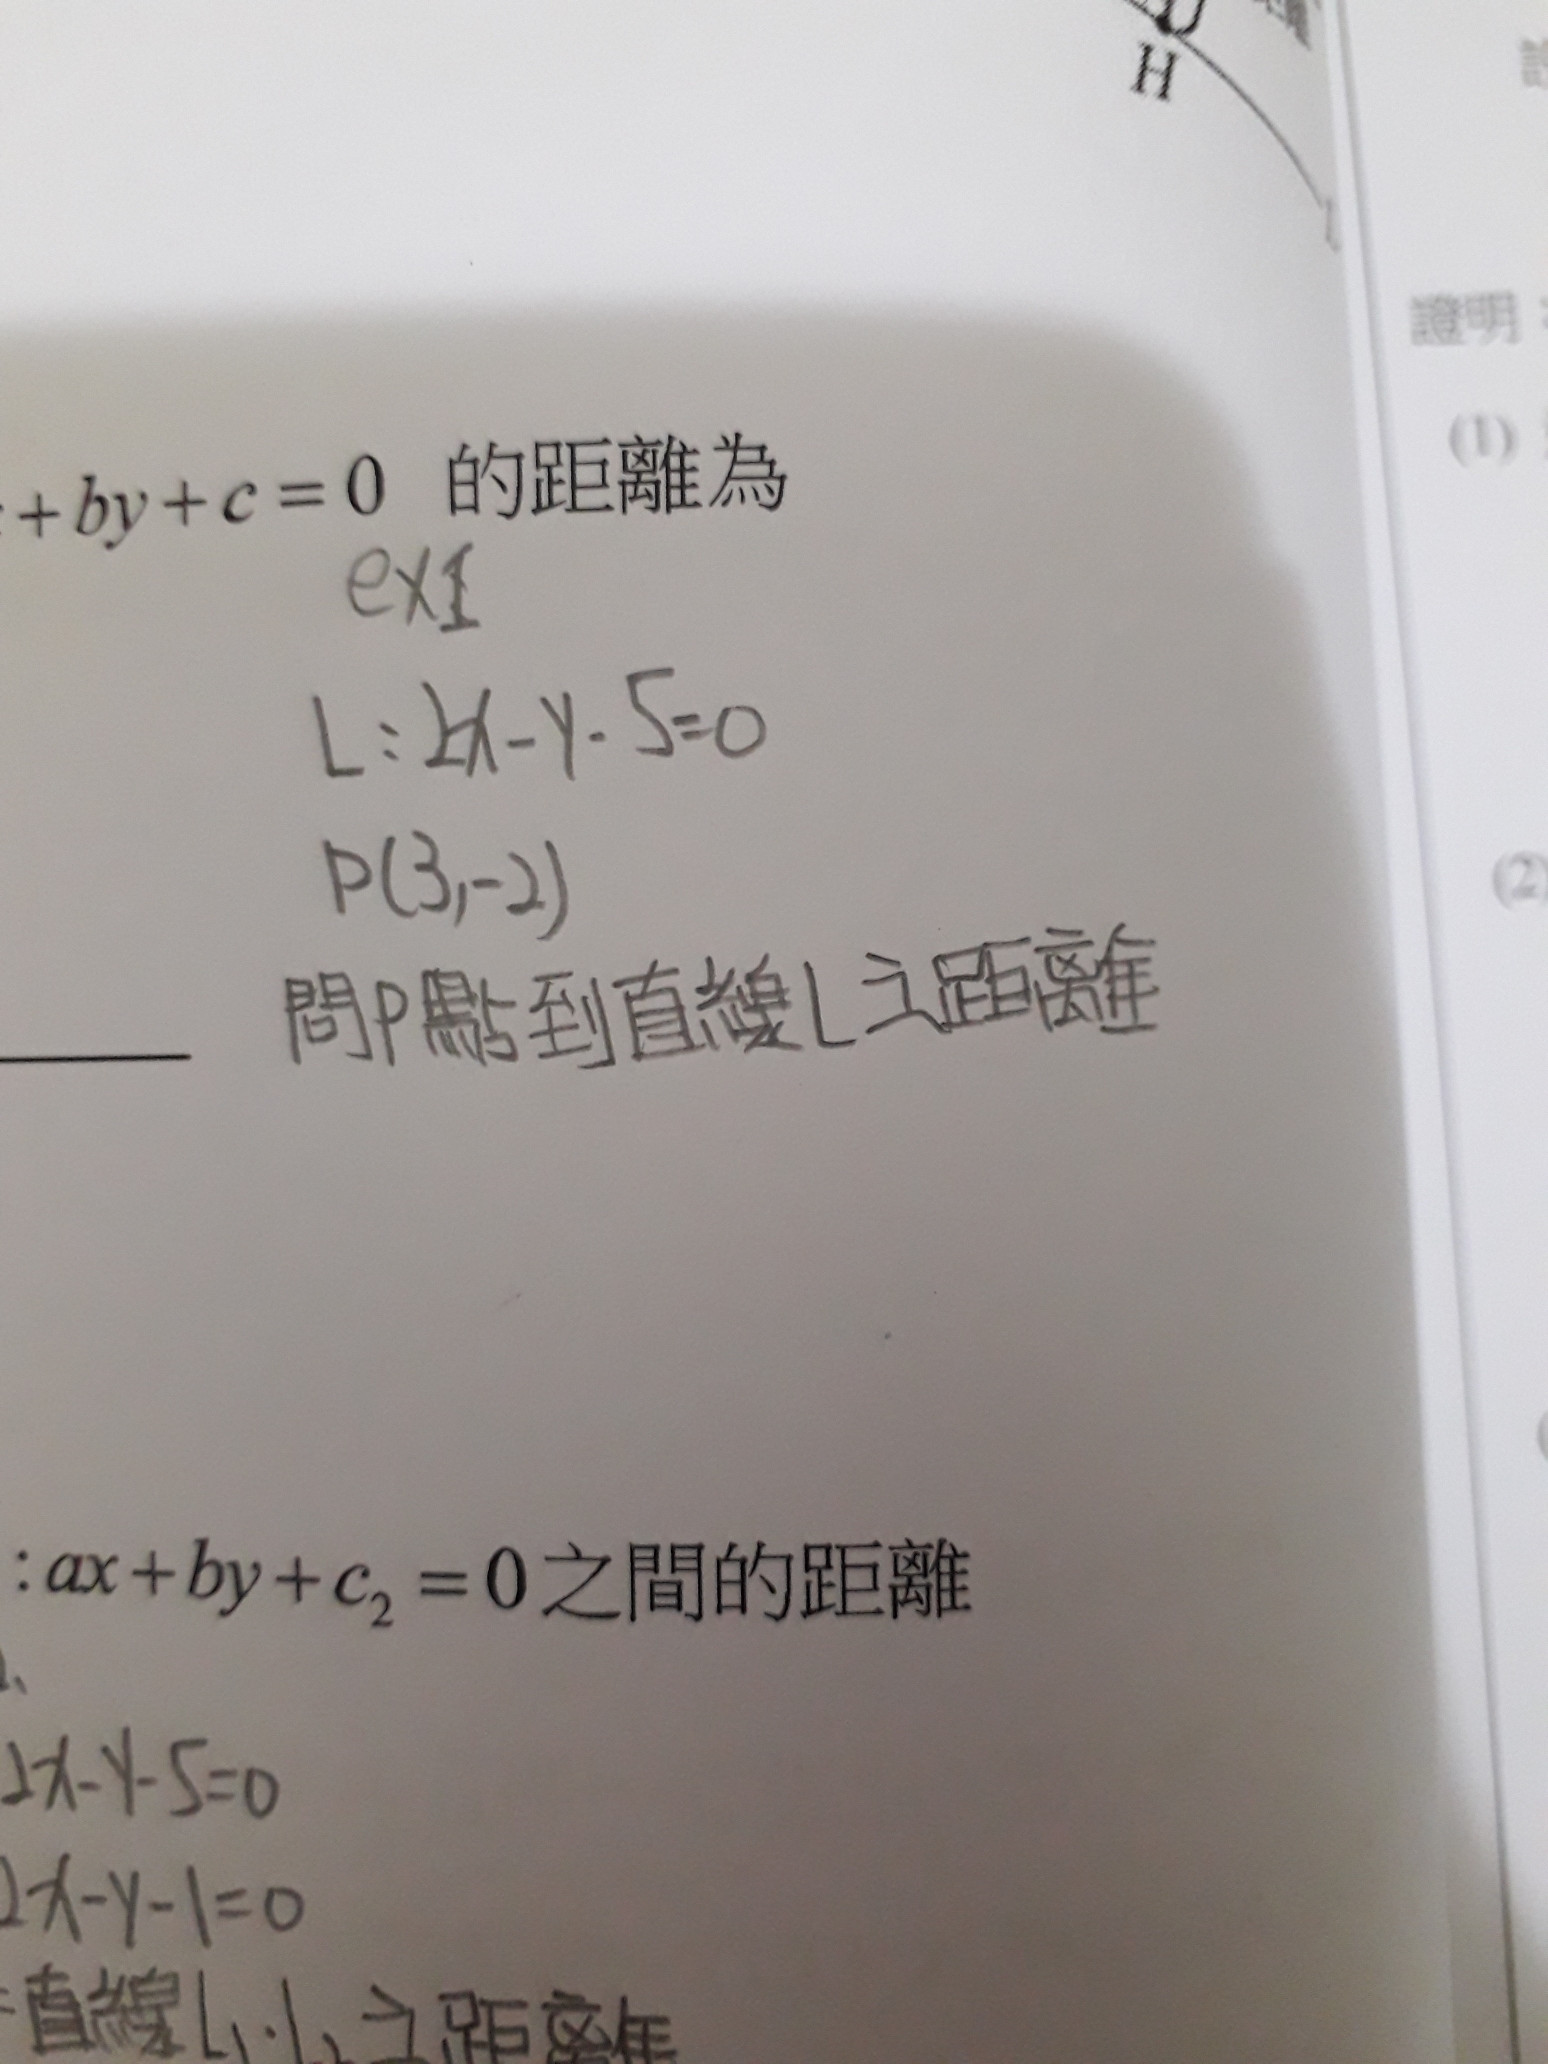 H
L
證明：
(1)
+by+c=0 的距離為
ex1
L:2x-y-5=0
P(3,-2)
(2)
問P點到直線L之距離
:ax+by+c₂=0之間的距離
2x-y-5=0
2x-y-1=0
直線L₁.L₂之距離